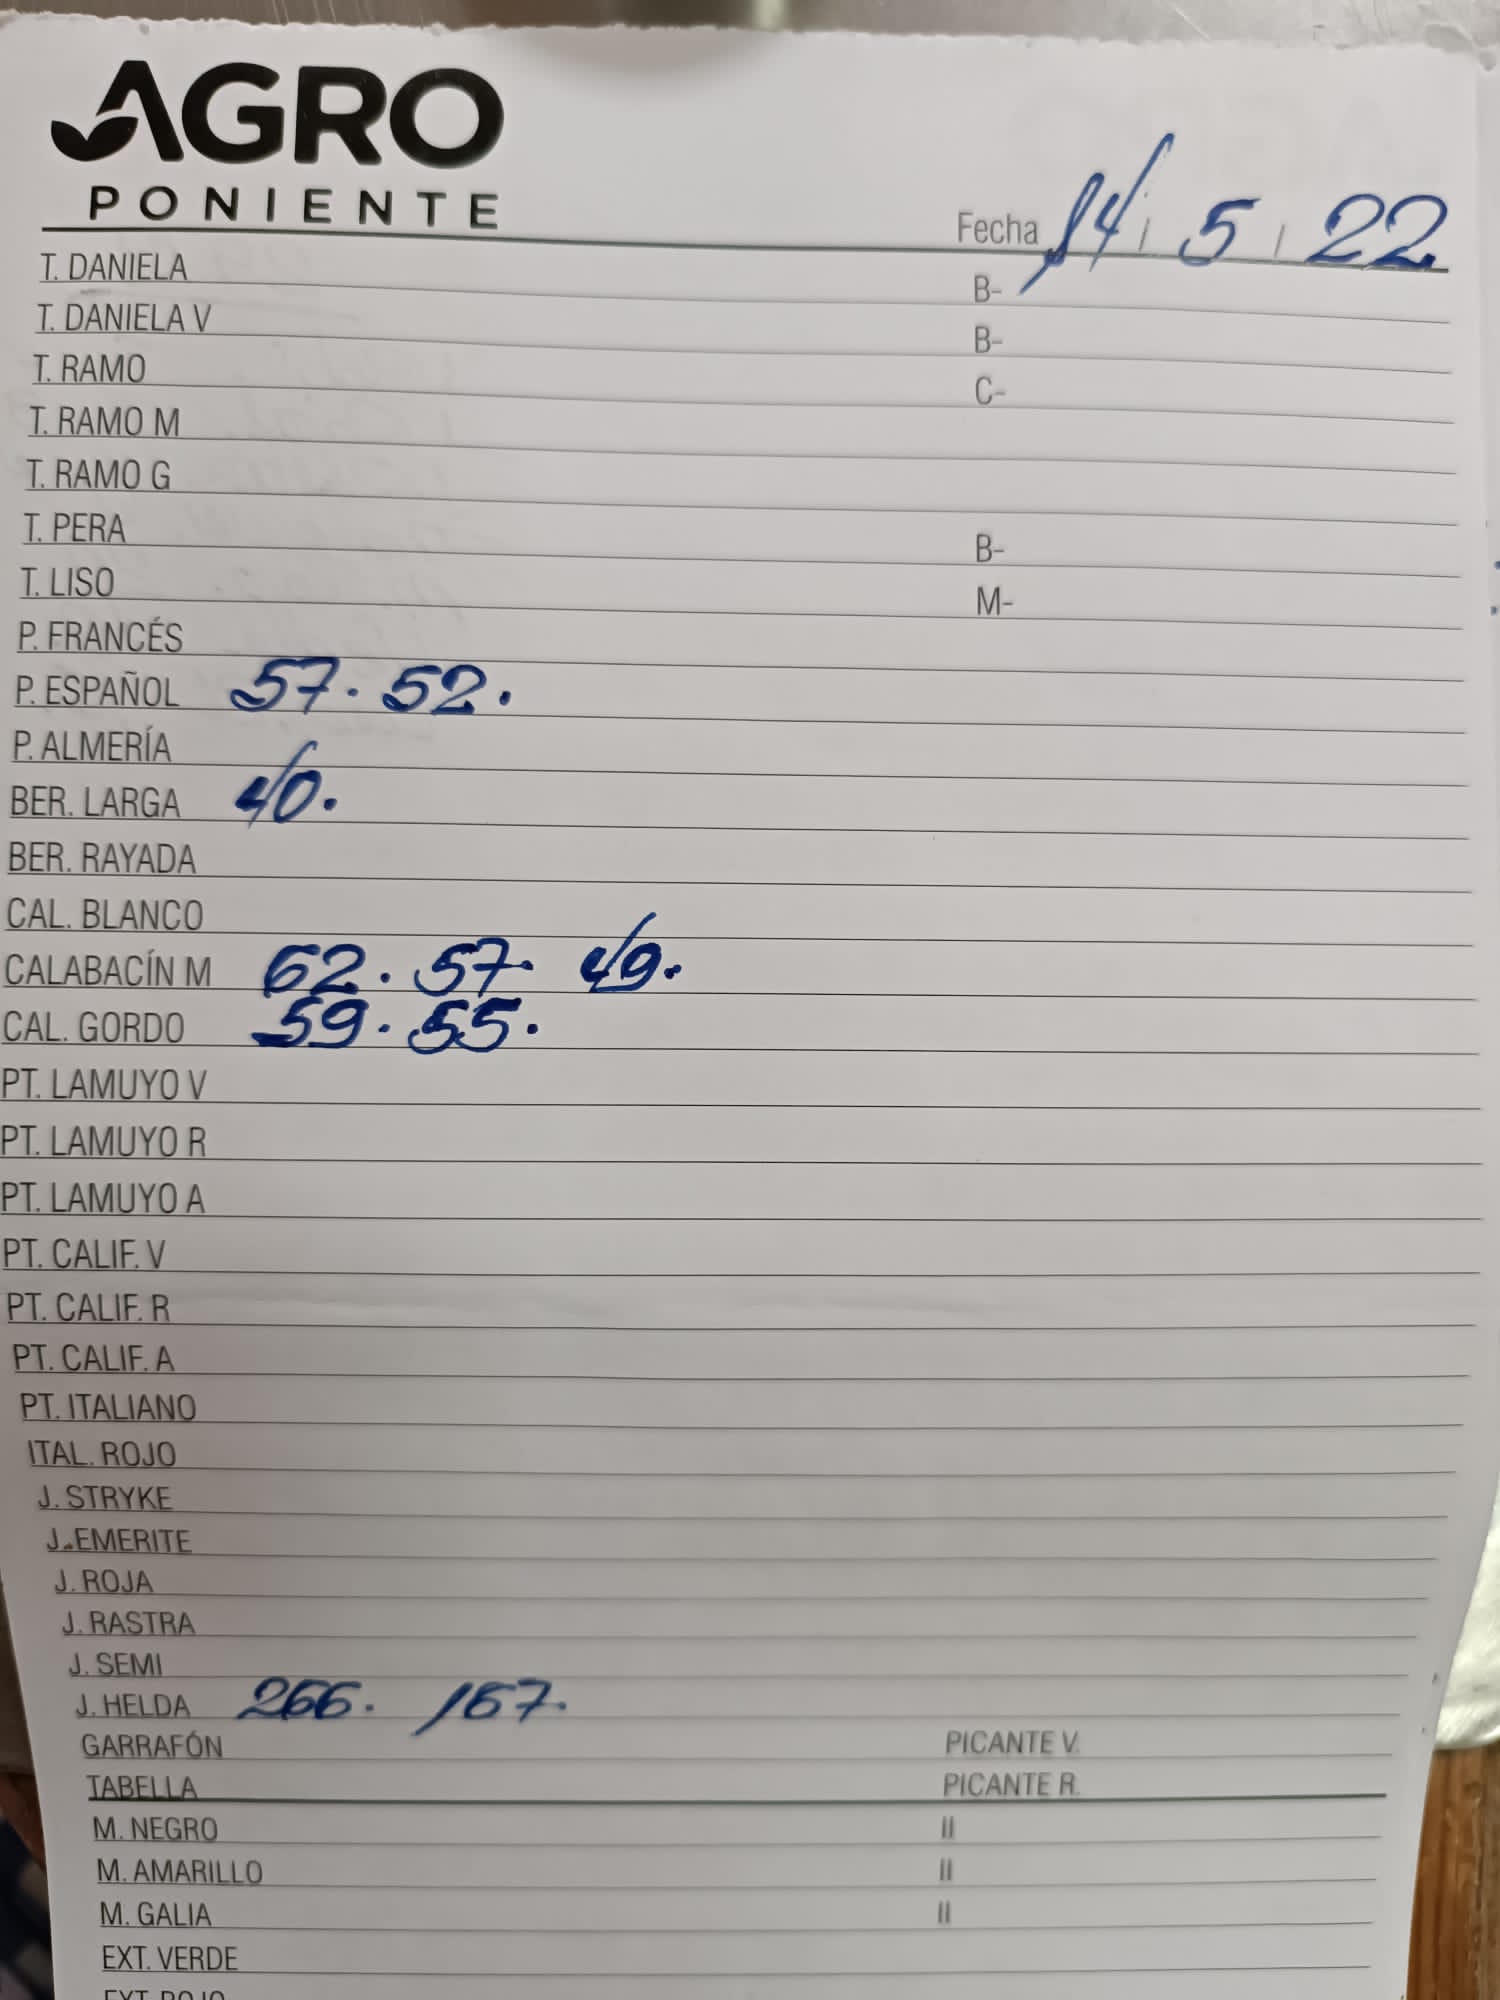 AGRO
PONIENTE
Fecha 14 / 5 / 22
T. DANIELA B-
T. DANIELA V B-
T. RAMO C-
T. RAMO M
T. RAMO G
T. PERA B-
T. LISO M-
P. FRANCÉS
P. ESPAÑOL 57. 52.
P. ALMERÍA
BER. LARGA 40.
BER. RAYADA
CAL. BLANCO
CALABACÍN M 62. 57. 49.
CAL. GORDO 59. 55.
PT. LAMUYO V
PT. LAMUYO R
PT. LAMUYO A
PT. CALIF. V
PT. CALIF. R
PT. CALIF. A
PT. ITALIANO
ITAL. ROJO
J. STRYKE
J. EMERITE
J. ROJA
J. RASTRA
J. SEMI
J. HELDA 266. 167.
GARRAFÓN PICANTE V.
TABELLA PICANTE R.
M. NEGRO II
M. AMARILLO II
M. GALIA II
EXT. VERDE
EXT. ROJO